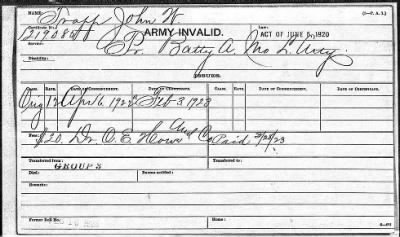 (3-P. A. I.)
NAME: Trapp John W.
Certificate No.: 219086 ARMY INVALID. LAW: ACT OF JUNE 5, 1920
Pr. Batty A, Mo L. Arty.
Disability:
ISSUES.
CLASS. RATE. DATE OF COMMENCEMENT. DATE OF CERTIFICATE. CLASS. RATE. DATE OF COMMENCEMENT. DATE OF CERTIFICATE.
Orig 12 Apr 6, 1922 Feb 3 1923
Fees: $20. Dr. O. E. and Co Paid 3/28/23
Transferred from: Transferred to:
GROUP 3
Died: Bureau notified:
Remarks:
Former Roll No. Home: